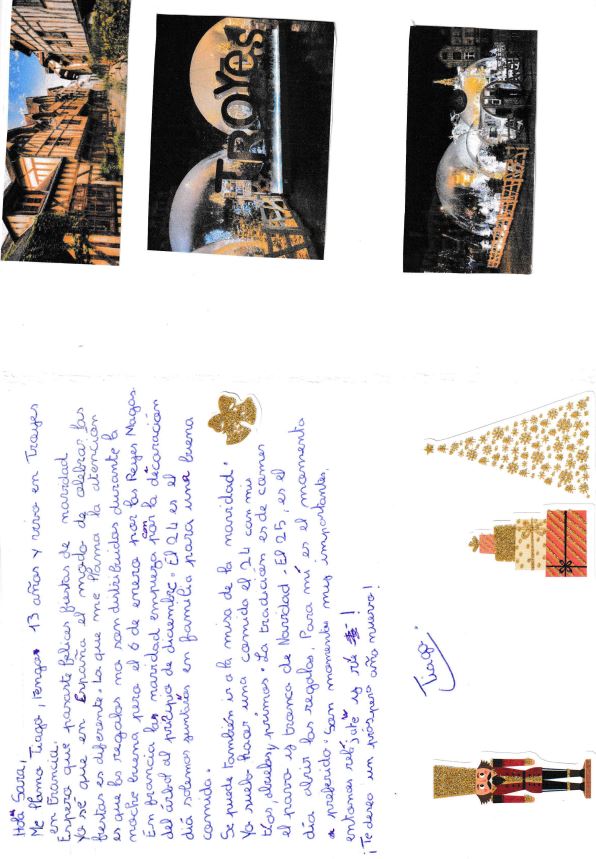 TROYES
Hola Sara,
Me llamo Tiago, tengo 13 años y vivo en Troyes
en Francia.
Espero que pasaste felices fiestas de navidad
Ya sé que en España el modo de celebrar las
fiestas es diferente. Lo que me llama la atención
es que los regalos no son distribuidos durante la
noche buena pero el 6 de enero por los Reyes Magos.
En francia la navidad empieza con la décoración
del árbol al principio de diciembre. El 24 es el
día solemos juntarnos en familia para una buena
comida.
Se puede también ir a la misa de la navidad.
Yo suelo hacer una comida el 24 con mis
tíos, abuelos, primos. La tradición es de comer
el pavo y tronco de Navidad. El 25, es el
día abrir los regalos. Para mí es el momento
preferido. Son momentos muy importante,
entonces relájate y ríe !
¡Te deseo un próspero año nuevo!
Tiago.